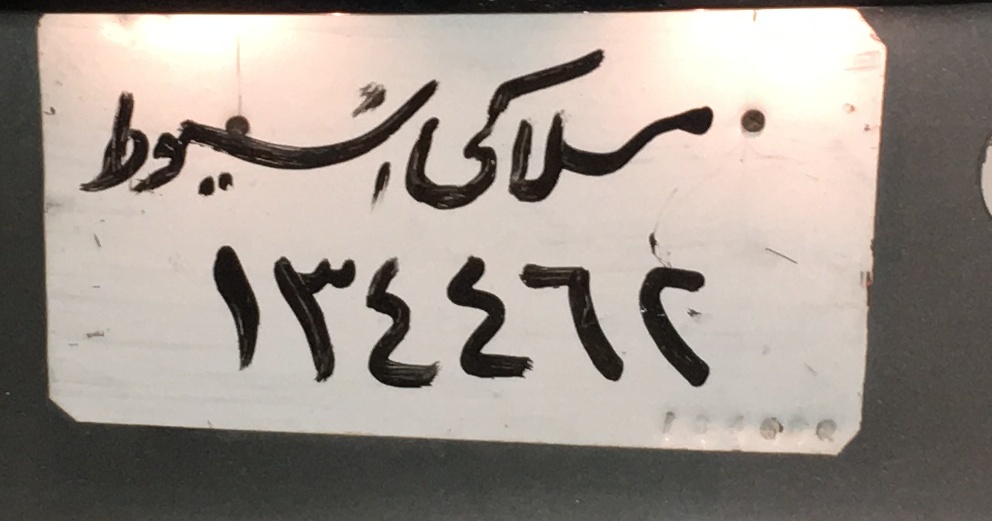 ملاكى اسيوط
١٣٤٤٦٢